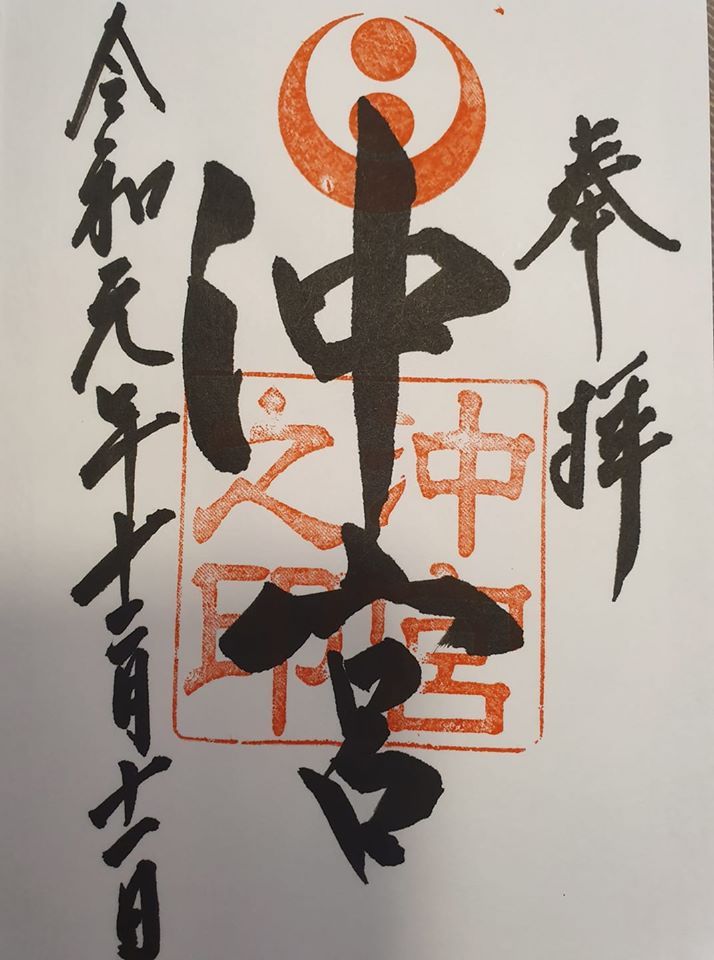 奉拝
沖宮
沖宮之印
令和元年十二月十一日